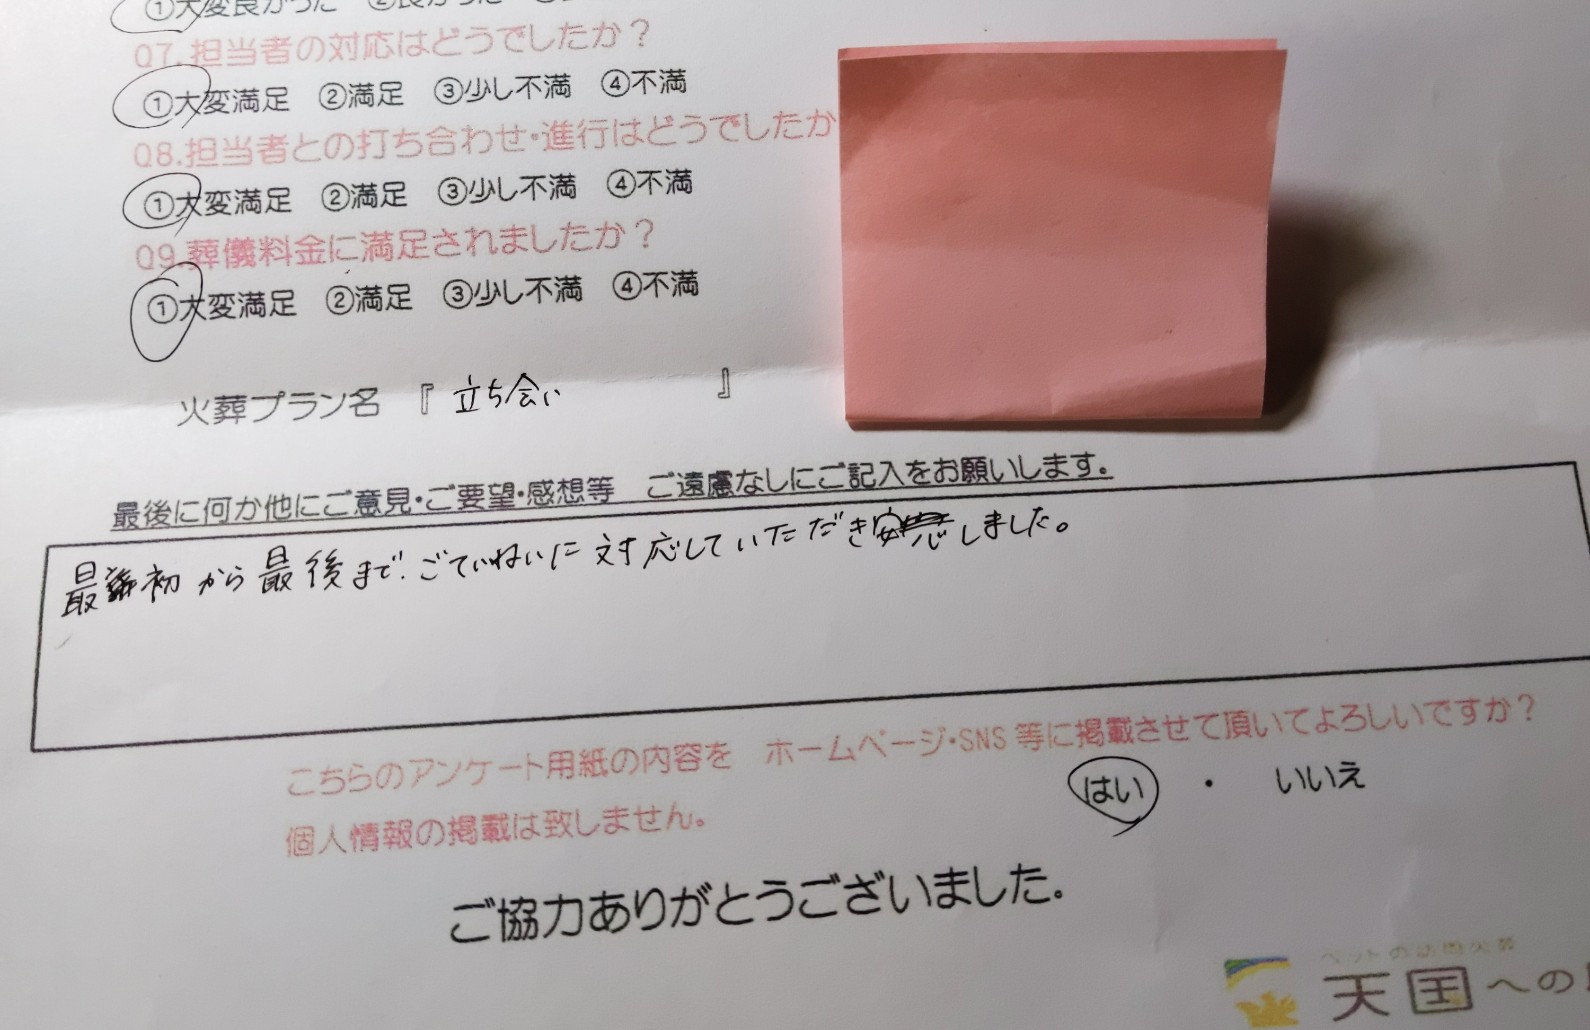 ①大変良かった ②良かった
Q7.担当者の対応はどうでしたか？
①大変満足 ②満足 ③少し不満 ④不満
Q8.担当者との打ち合わせ・進行はどうでしたか
①大変満足 ②満足 ③少し不満 ④不満
Q9.葬儀料金に満足されましたか？
①大変満足 ②満足 ③少し不満 ④不満
火葬プラン名 『 立ち会い 』
最後に何か他にご意見・ご要望・感想等 ご遠慮なしにご記入をお願いします。
最初から最後まで、ごていねいに対応していただき安心しました。
こちらのアンケート用紙の内容を ホームページ・SNS等に掲載させて頂いてよろしいですか？
はい ・ いいえ
個人情報の掲載は致しません。
ご協力ありがとうございました。
ペットの訪問火葬
天国への